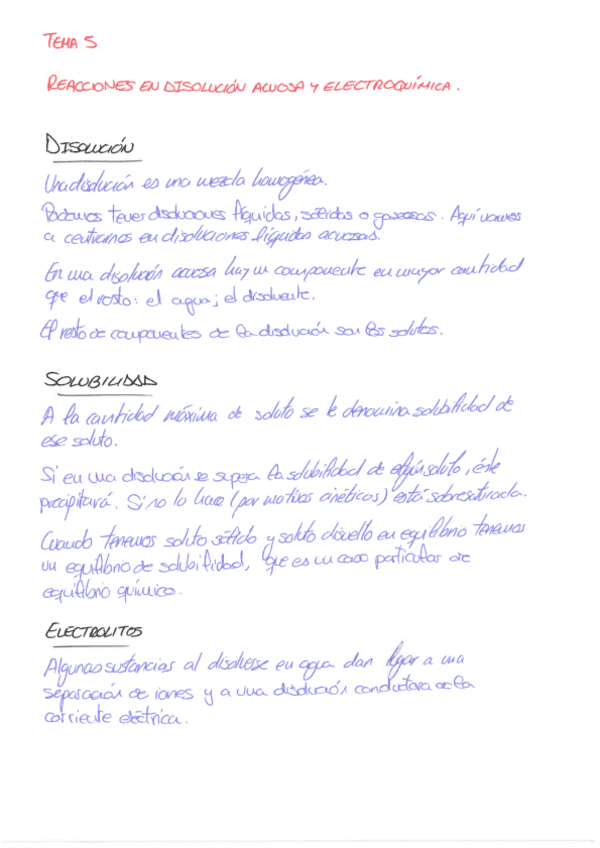 TEMA 5
REACCIONES EN DISOLUCIÓN ACUOSA Y ELECTROQUÍMICA.
DISOLUCIÓN
Una disolución es una mezcla homogénea.
Podemos tener disoluciones líquidas, sólidas o gaseosas. Aquí vamos
a centrarnos en disoluciones líquidas acuosas.
En una disolución acuosa hay un componente en mayor cantidad
que el resto: el agua; el disolvente.
El resto de componentes de la disolución son los solutos.
SOLUBILIDAD
A la cantidad máxima de soluto se le denomina solubilidad de
ese soluto.
Si en una disolución se supera la solubilidad de algún soluto, éste
precipitará. Si no lo hace (por motivos cinéticos) está sobresaturada.
Cuando tenemos soluto sólido y soluto disuelto en equilibrio tenemos
un equilibrio de solubilidad, que es un caso particular de
equilibrio químico.
ELECTROLITOS
Algunas sustancias al disolverse en agua dan lugar a una
separación de iones y a una disolución conductora de la
corriente eléctrica.